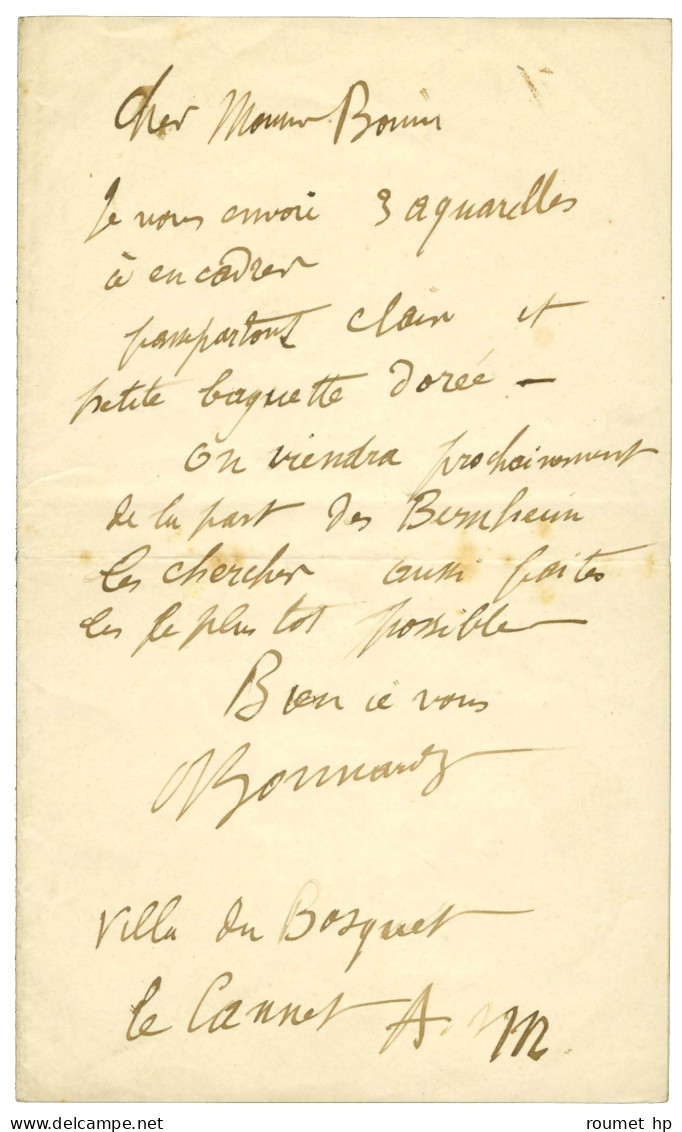 Cher Monsieur Bonin
Je vous envoie 3 aquarelles
à encadrer
passpartout clair et
petite baguette dorée —
On viendra prochainement
de la part des Bernheim
les chercher aussi faites
les le plus tôt possible
Bien à vous
Bonnard
Villa du Bosquet
le Cannet A. M
roumet hp